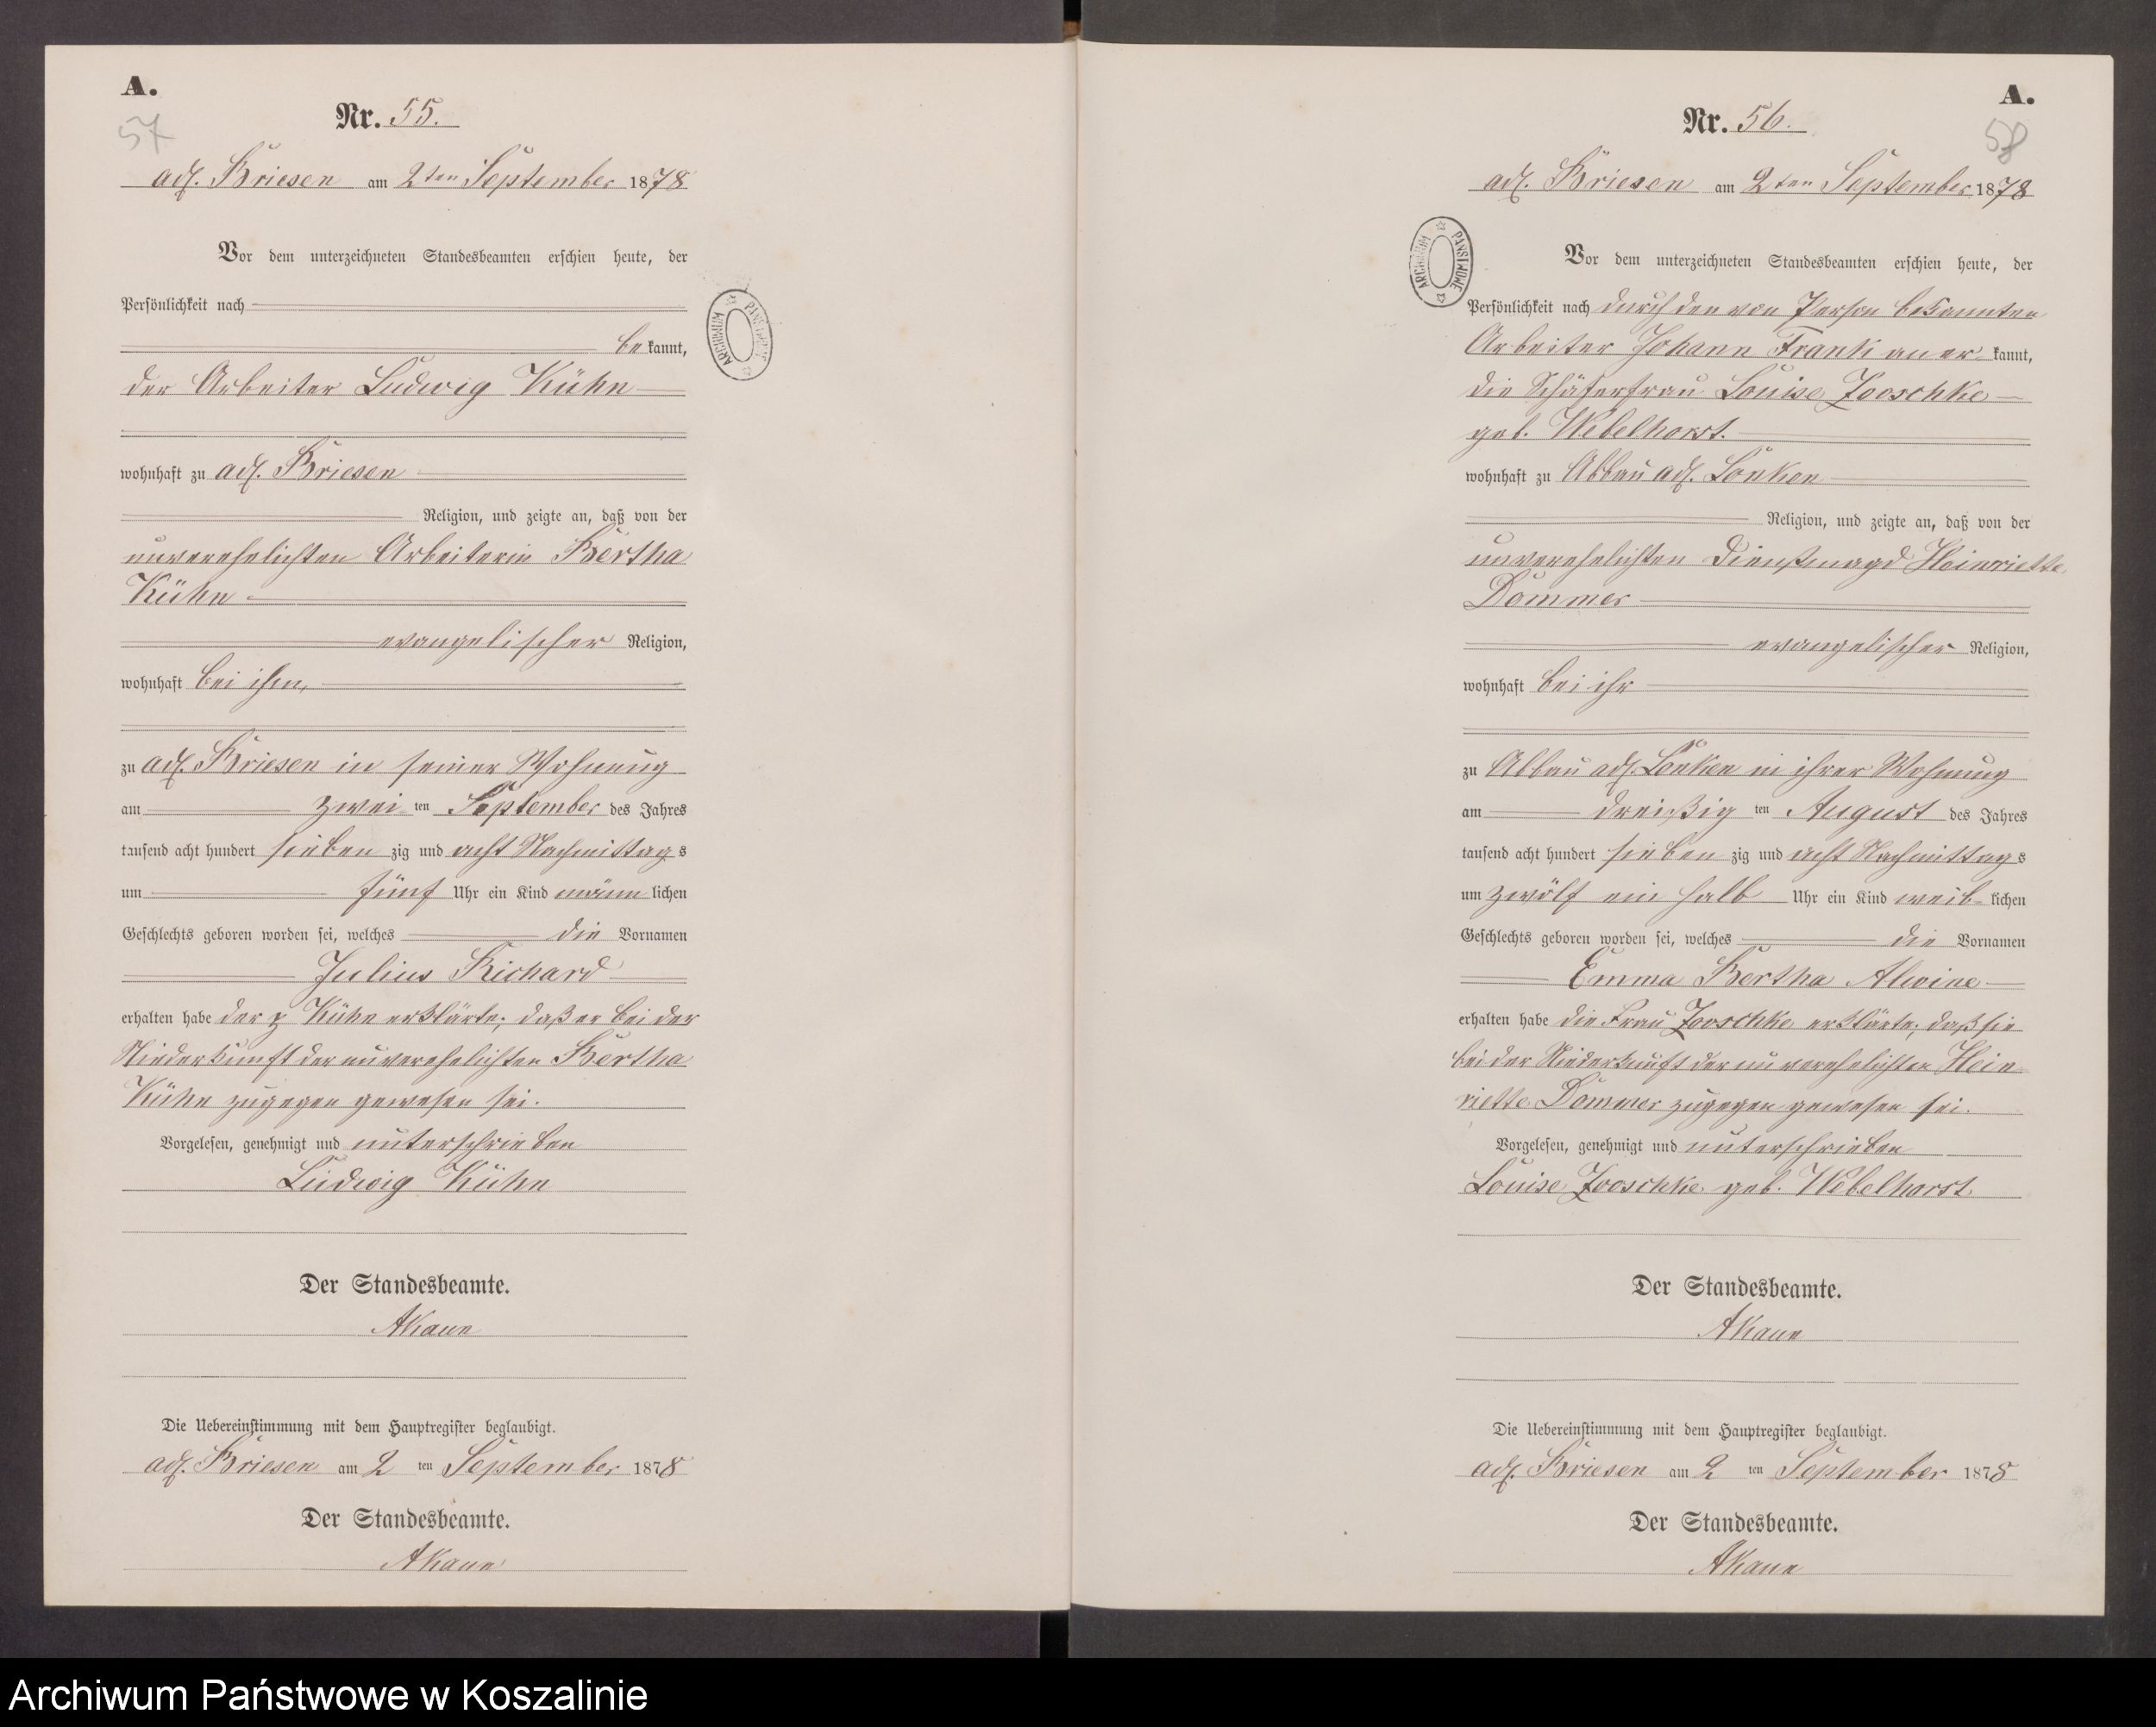 A.
57
Nr. 55.
adl. Briesen am 2ten September 1878
Vor dem unterzeichneten Standesbeamten erschien heute, der
Persönlichkeit nach
be kannt,
der Arbeiter Ludwig Kühn
wohnhaft zu adl. Briesen
Religion, und zeigte an, daß von der
unverehelichten Arbeiterin Bertha
Kühn
evangelischer Religion,
wohnhaft bei ihm,
zu adl. Briesen in seiner Wohnung
am zwei ten September des Jahres
tausend acht hundert sieben zig und acht Nachmittags
um fünf Uhr ein Kind männ lichen
Geschlechts geboren worden sei, welches die Vornamen
Julius Richard
erhalten habe der p Kühn erklärte, daß er bei der
Niederkunft der unverehelichten Bertha
Kühn zugegen gewesen sei.
Vorgelesen, genehmigt und unterschrieben
Ludwig Kühn
Der Standesbeamte.
AKaun
Die Uebereinstimmung mit dem Hauptregister beglaubigt.
adl. Briesen am 2 ten September 1878
Der Standesbeamte.
AKaun
ARCHIWUM PAŃSTWOWE
A.
58
Nr. 56.
adl. Briesen am 2ten September 1878
Vor dem unterzeichneten Standesbeamten erschien heute, der
Persönlichkeit nach durch den von Person bekannten
Arbeiter Johann Frank aner- kannt,
die Schäferfrau Louise Zooschke
geb. Webelhorst.
wohnhaft zu Abbau adl. Lonken
Religion, und zeigte an, daß von der
unverehelichten Dienstmagd Heinriette
Dommer
evangelischer Religion,
wohnhaft bei ihr
zu Abbau adl. Lonken in ihrer Wohnung
am dreißig ten August des Jahres
tausend acht hundert sieben zig und acht Nachmittags
um zwölf ein halb Uhr ein Kind weib- lichen
Geschlechts geboren worden sei, welches die Vornamen
Emma Bertha Alwine
erhalten habe die Frau Zooschke erklärte, daß sie
bei der Niederkunft der unverehelichten Hein
riette Dommer zugegen gewesen sei.
Vorgelesen, genehmigt und unterschrieben
Louise Zooschke geb. Webelhorst
Der Standesbeamte.
AKaun
Die Uebereinstimmung mit dem Hauptregister beglaubigt.
adl. Briesen am 2 ten September 1878
Der Standesbeamte.
AKaun
ARCHIWUM PAŃSTWOWE
Archiwum Państwowe w Koszalinie